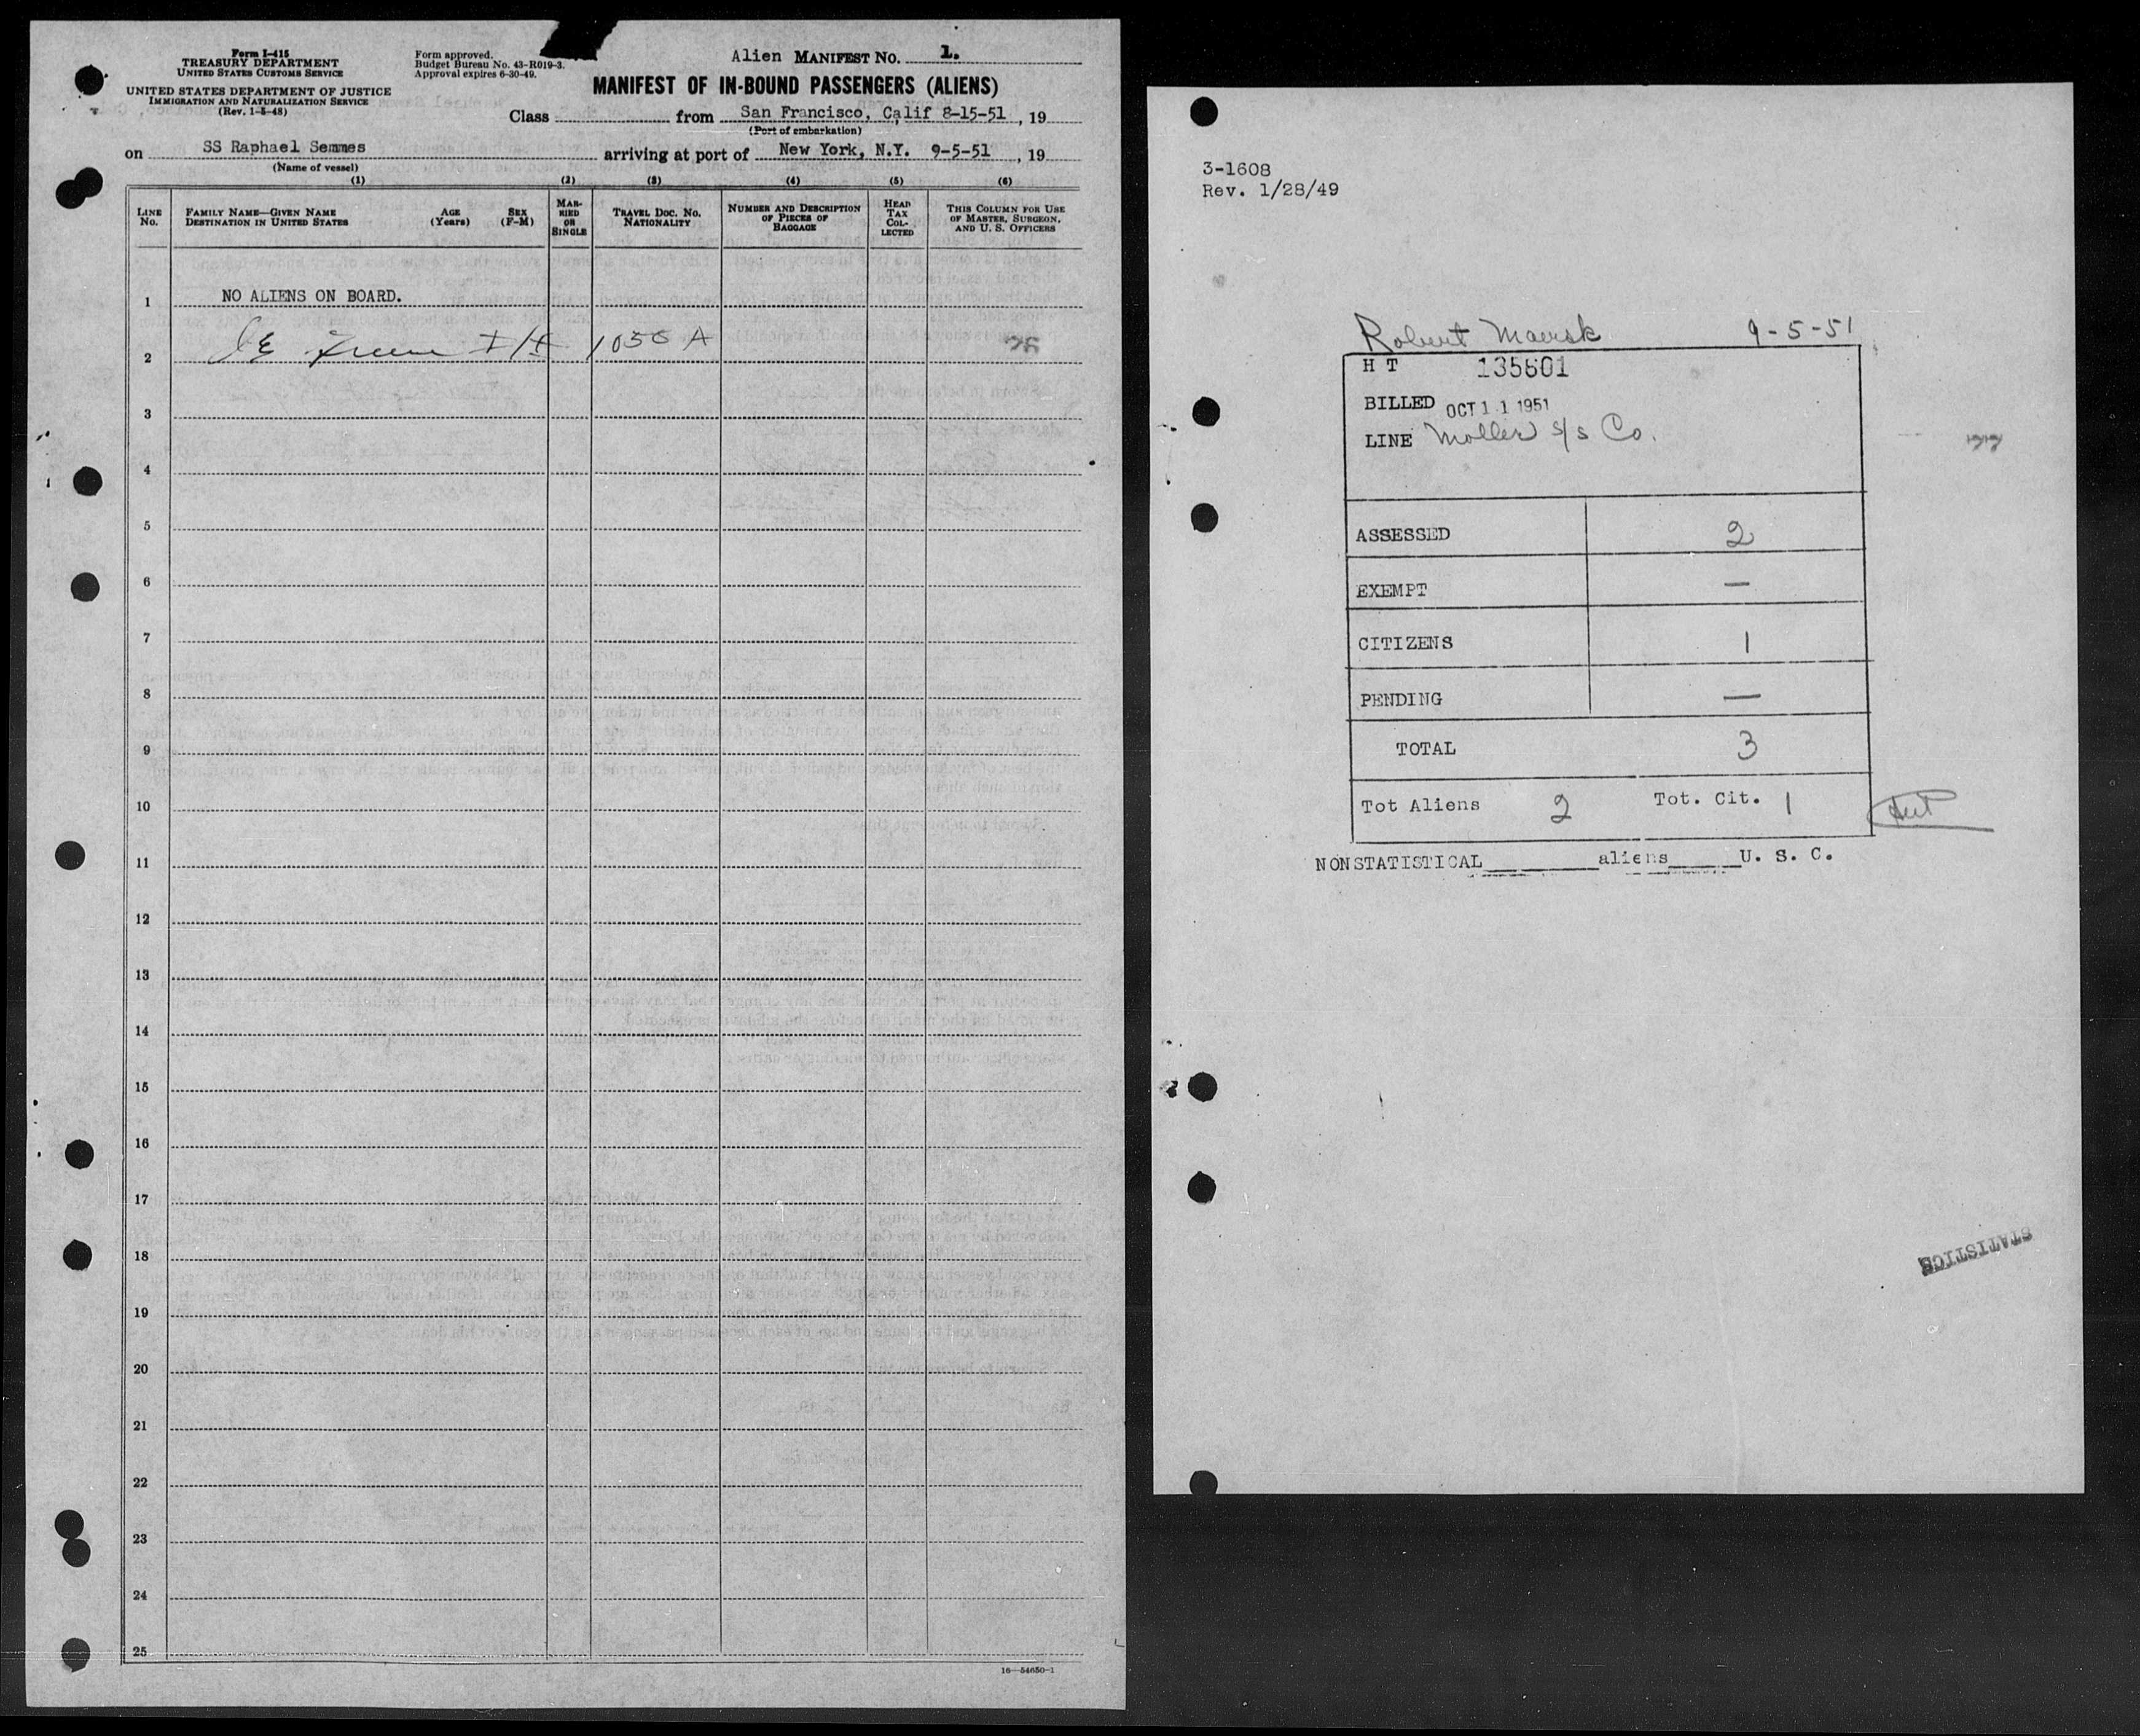 Form I-415
TREASURY DEPARTMENT
UNITED STATES CUSTOMS SERVICE
UNITED STATES DEPARTMENT OF JUSTICE
IMMIGRATION AND NATURALIZATION SERVICE
(Rev. 1-5-48)
Form approved.
Budget Bureau No. 43-R019-3.
Approval expires 6-30-49.
Alien MANIFEST NO. 1.
MANIFEST OF IN-BOUND PASSENGERS (ALIENS)
Class from San Francisco, Calif 8-15-51, 19
(Port of embarkation)
on SS Raphael Semmes arriving at port of New York, N.Y. 9-5-51, 19
(Name of vessel)
(1) (2) (3) (4) (5) (6)
LINE No.
FAMILY NAME—GIVEN NAME
DESTINATION IN UNITED STATES
AGE (Years)
SEX (F-M)
MARRIED OR SINGLE
TRAVEL DOC. NO.
NATIONALITY
NUMBER AND DESCRIPTION OF PIECES OF BAGGAGE
HEAD TAX COLLECTED
THIS COLUMN FOR USE OF MASTER, SURGEON, AND U. S. OFFICERS
1 NO ALIENS ON BOARD.
2
3
4
5
6
7
8
9
10
11
12
13
14
15
16
17
18
19
20
21
22
23
24
25
16—54650-1
3-1608
Rev. 1/28/49
Robert Maersk 9-5-51
H T 135601
BILLED OCT 11 1951
LINE Moller S/S Co.
ASSESSED 2
EXEMPT —
CITIZENS 1
PENDING —
TOTAL 3
Tot Aliens 2 Tot. Cit. 1
NONSTATISTICAL aliens U. S. C.
STATISTICS